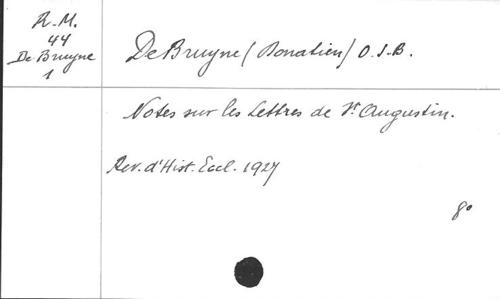 R.M.
44
De Bruyne
1
De Bruyne (Donatien) O.S.B.
Notes sur les Lettres de St. Augustin.
Rev. d'Hist. Eccl. 1927
8°